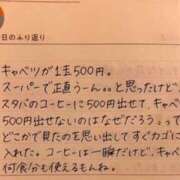 日のふり返り
キャベツが1玉500円。
スーパーで正直う〜ん。。と思ったけど、
スタバのコーヒーに500円出せて、キャベ
500円出せないのはなぜだろう。って
どこかで見たのを思い出してすぐカゴに
入れた。コーヒーは一瞬だけど、キャベ
何食分も使えるもんね。